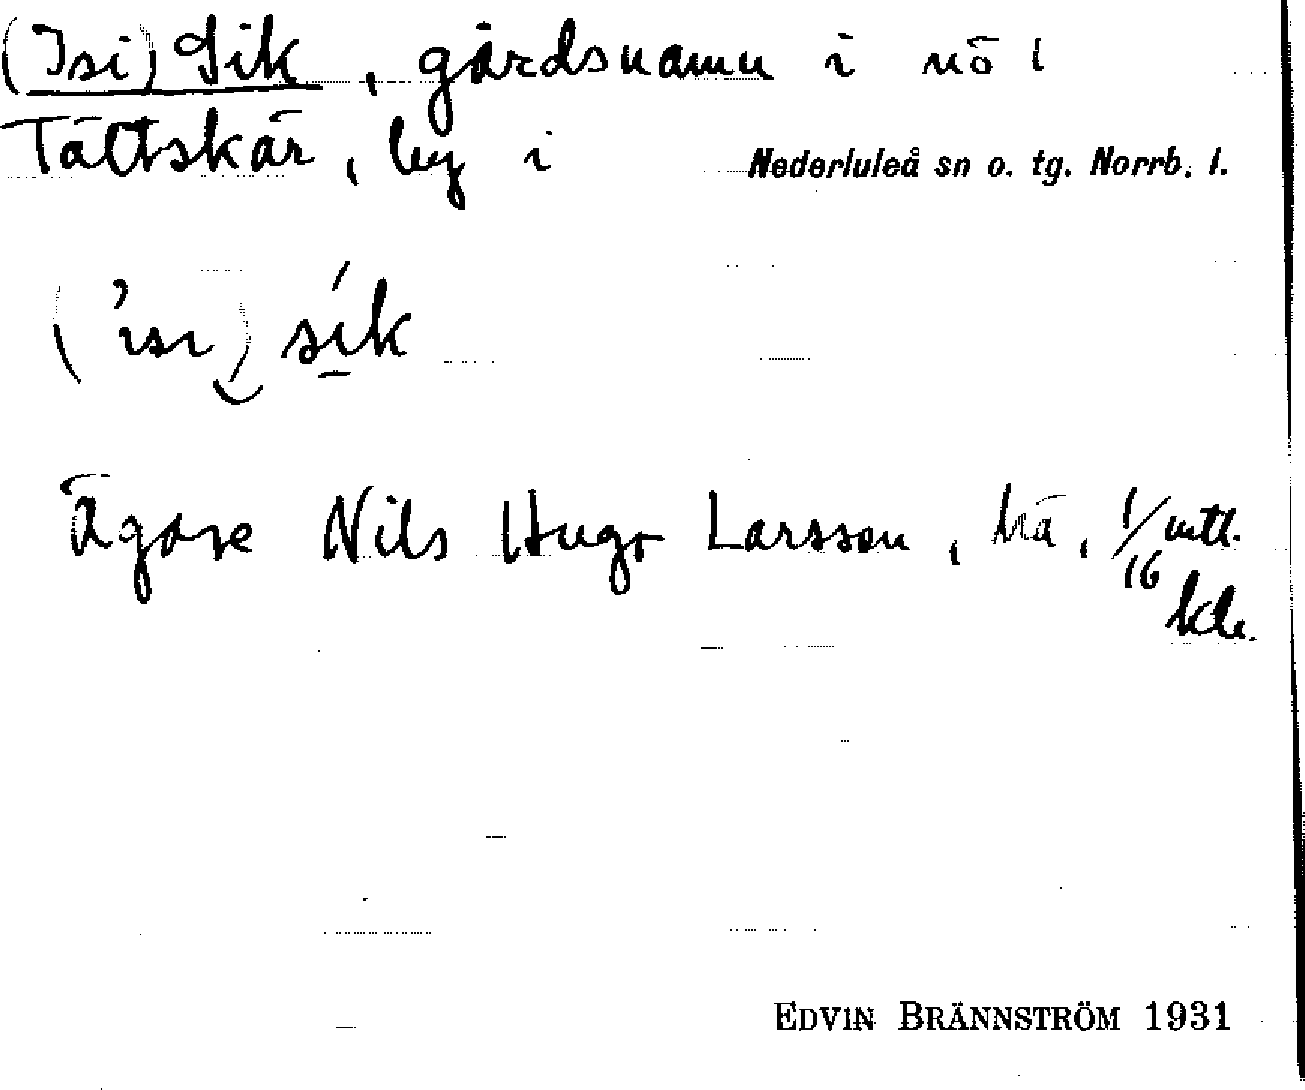 (Isi) Sik, gårdsnamn i nö l
Tältskär, by i Nederluleå sn o. tg. Norrb. l.
('isi) sik
Ägare Nils Hugo Larsson, hä, 1/16 mtl.
EDVIN BRÄNNSTRÖM 1931